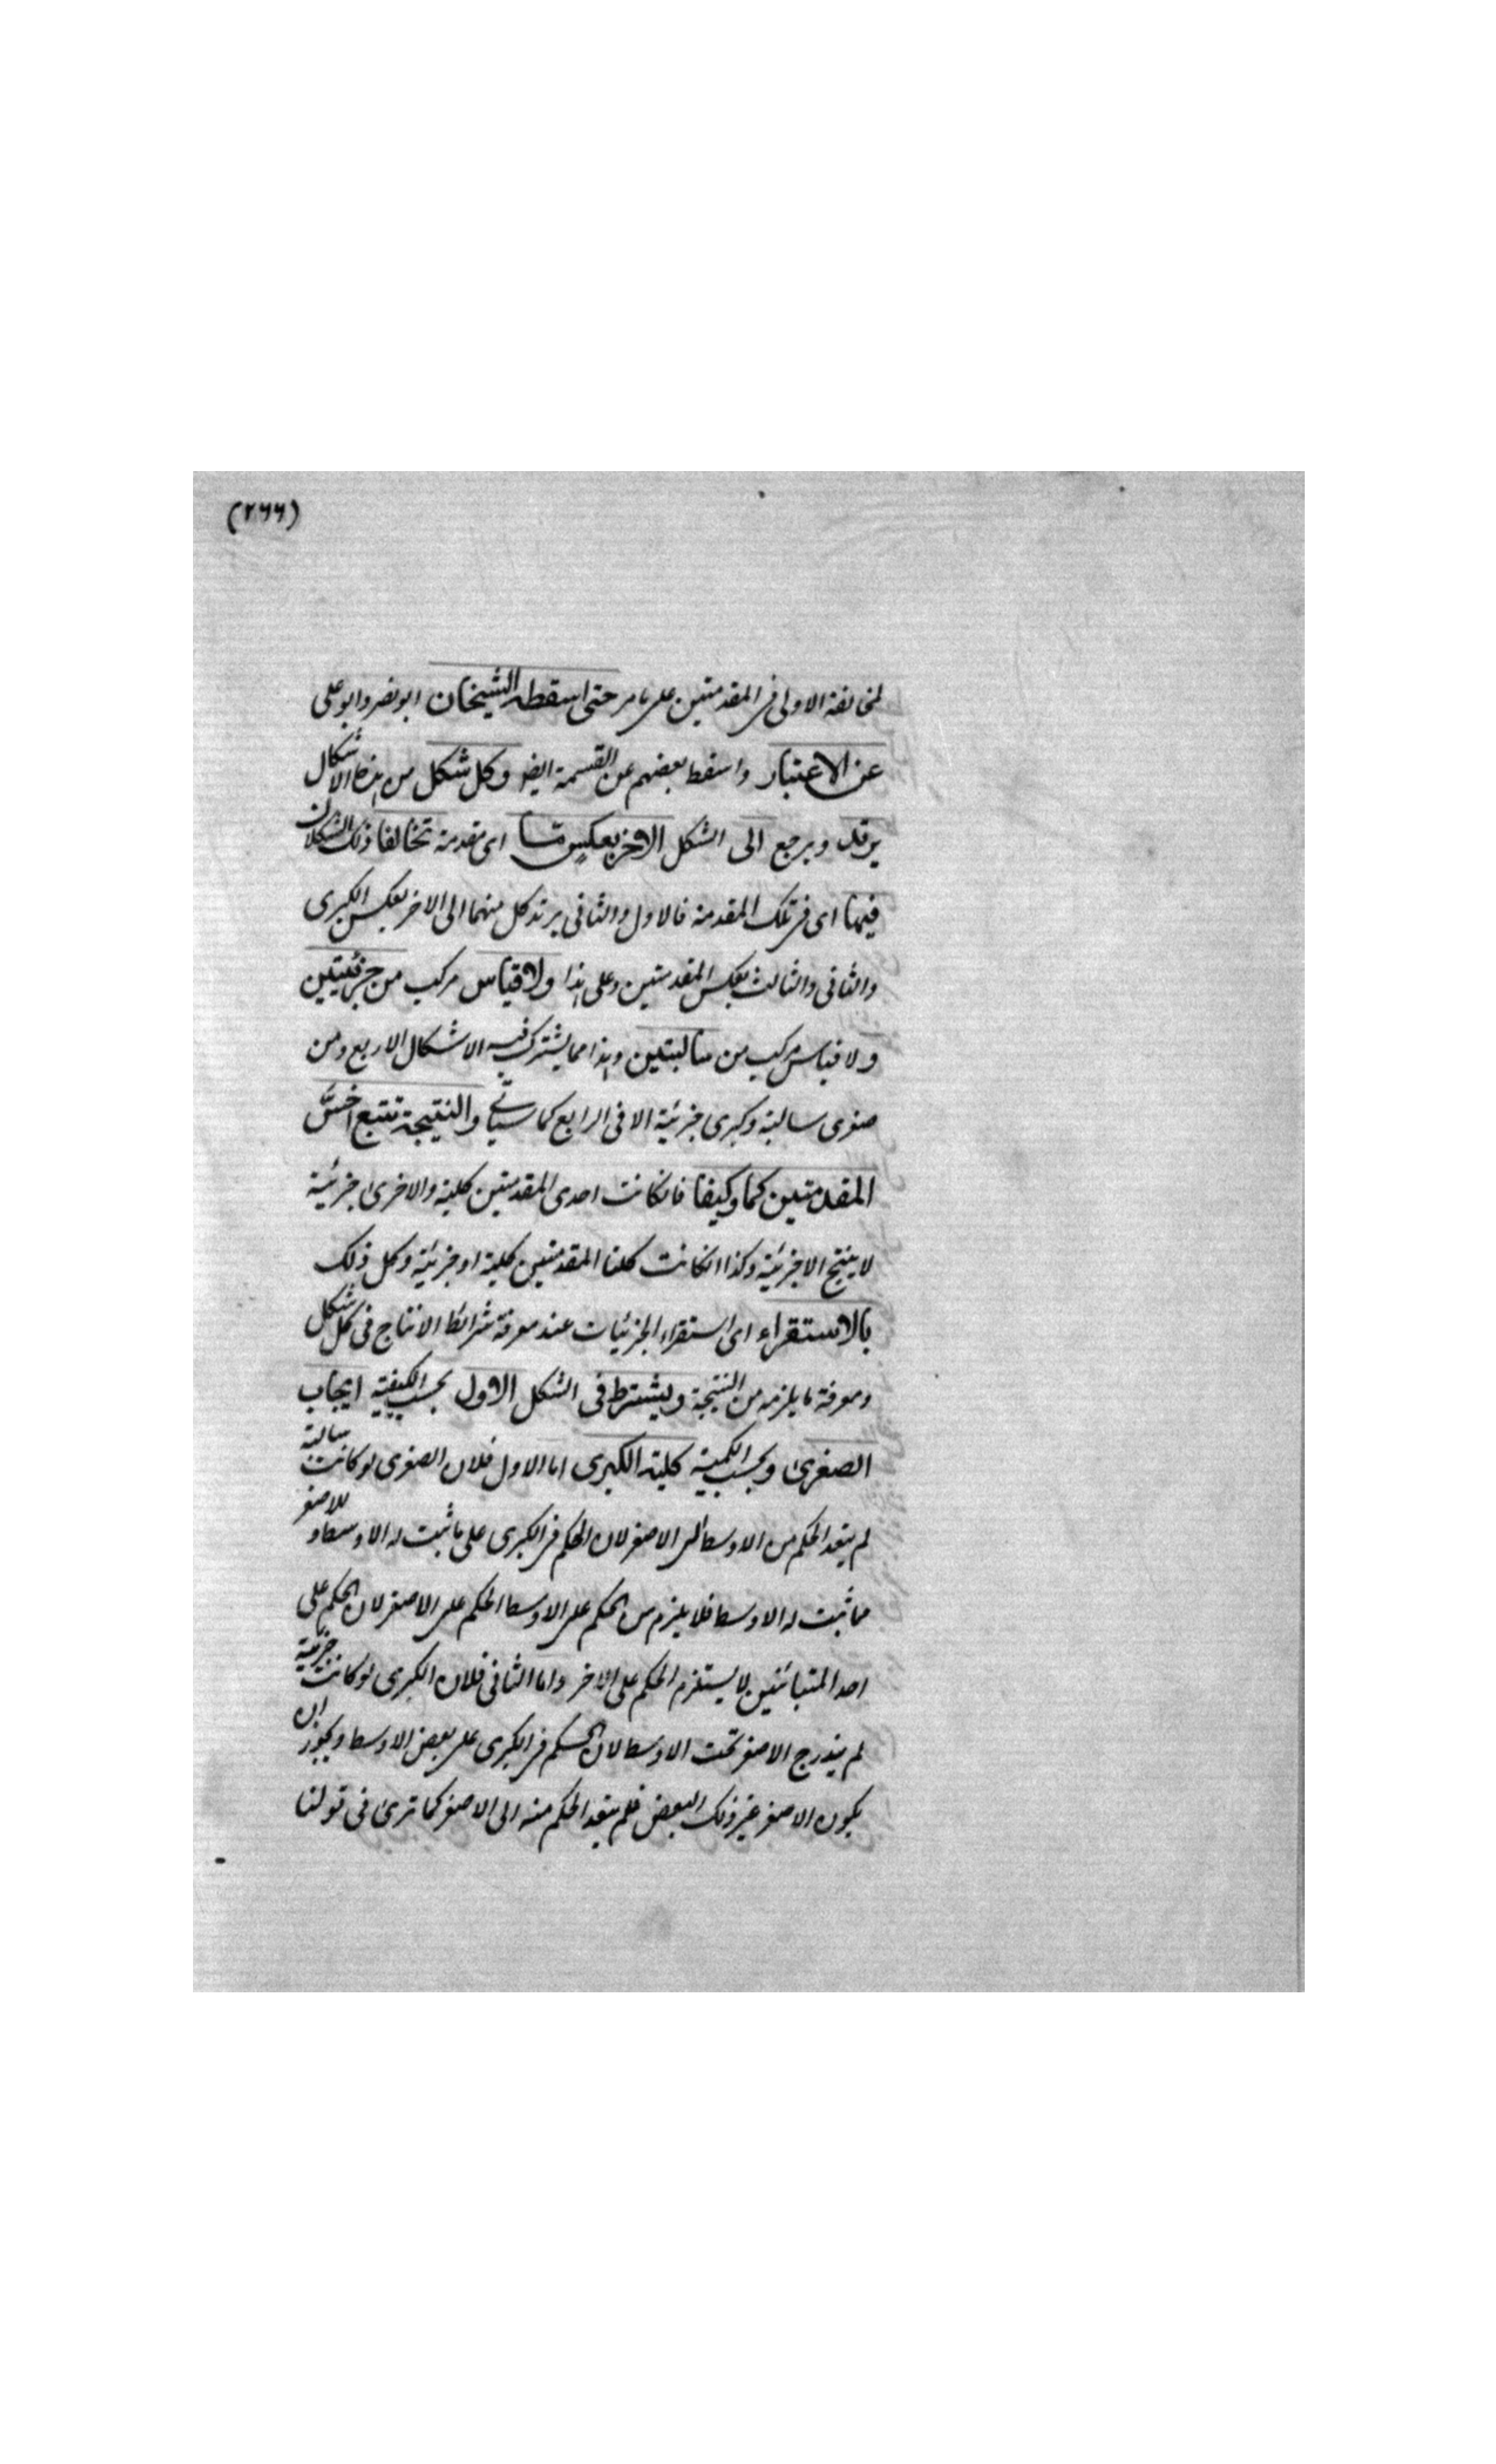 (۲۶۶)
لمخالفة الاولى فى المقدمتين على ما مر حتى اسقطه الشيخان ابو نصر وابو على
عن الاعتبار واسقط بعضهم عن القسمة ايضا وكل شكل من هذه الاشكال
يرتد ويرجع الى الشكل الاخر بعكس ما اى مقدمة تخالفا ذلك الشكلان
فيها اى فى تلك المقدمة فالاول والثانى يرتد كل منهما الى الاخر بعكس الكبرى
والثانى والثالث بعكس المقدمتين وعلى هذا ولا قياس مركب من جزئيتين
ولا قياس مركب من سالبتين وهذا مما يشترك فيه الاشكال الاربع ومن
صغرى سالبة وكبرى جزئية الا فى الرابع كما سيأتي والنتيجة تتبع اخسّ
المقدمتين كما وكيفا فانكانت احدى المقدمتين كلية والاخرى جزئية
لا ينتج الا جزئية وكذا انكانت كلتا المقدمتين كلية او جزئية وكل ذلك
بالاستقراء اى استقراء الجزئيات عند معرفة شرائط الانتاج فى كل شكل
ومعرفة ما يلزمه من النتيجة ويشترط فى الشكل الاول بحسب الكيفية ايجاب
الصغرى وبحسب الكمية كلية الكبرى اما الاول فلان الصغرى لو كانت سالبة
لم يتعد الحكم من الاوسط الى الاصغر لان الحكم فى الكبرى على ما ثبت له الاوسط و الاصغر
مما ثبت له الاوسط فلا يلزم من الحكم على الاوسط الحكم على الاصغر لان الحكم على
احد المتبائنين لا يستلزم الحكم على الاخر واما الثانى فلان الكبرى لو كانت جزئية
لم يندرج الاصغر تحت الاوسط لان الحكم فى الكبرى على بعض الاوسط ويجوز ان
يكون الاصغر غير ذلك البعض فلم يتعد الحكم منه الى الاصغر كما ترى فى قولنا